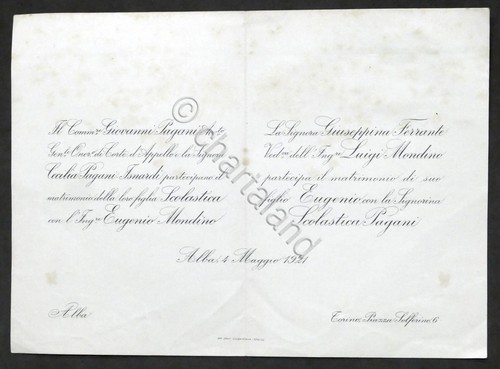 Il Comm.re Giovanni Pagani
Gen.le Onor. di Corte d'Appello e la Signora
Cecilia Pagani Isnardi partecipano il
matrimonio della loro figlia Scolastica
con l'Ing.re Eugenio Mondino
La Signora Giuseppina Ferrante
Ved.va dell'Ing.re Luigi Mondino
partecipa il matrimonio di suo
figlio Eugenio con la Signorina
Scolastica Pagani
Alba 4 Maggio 1921
Alba
Torino, Piazza Solferino 6
© Chartaland